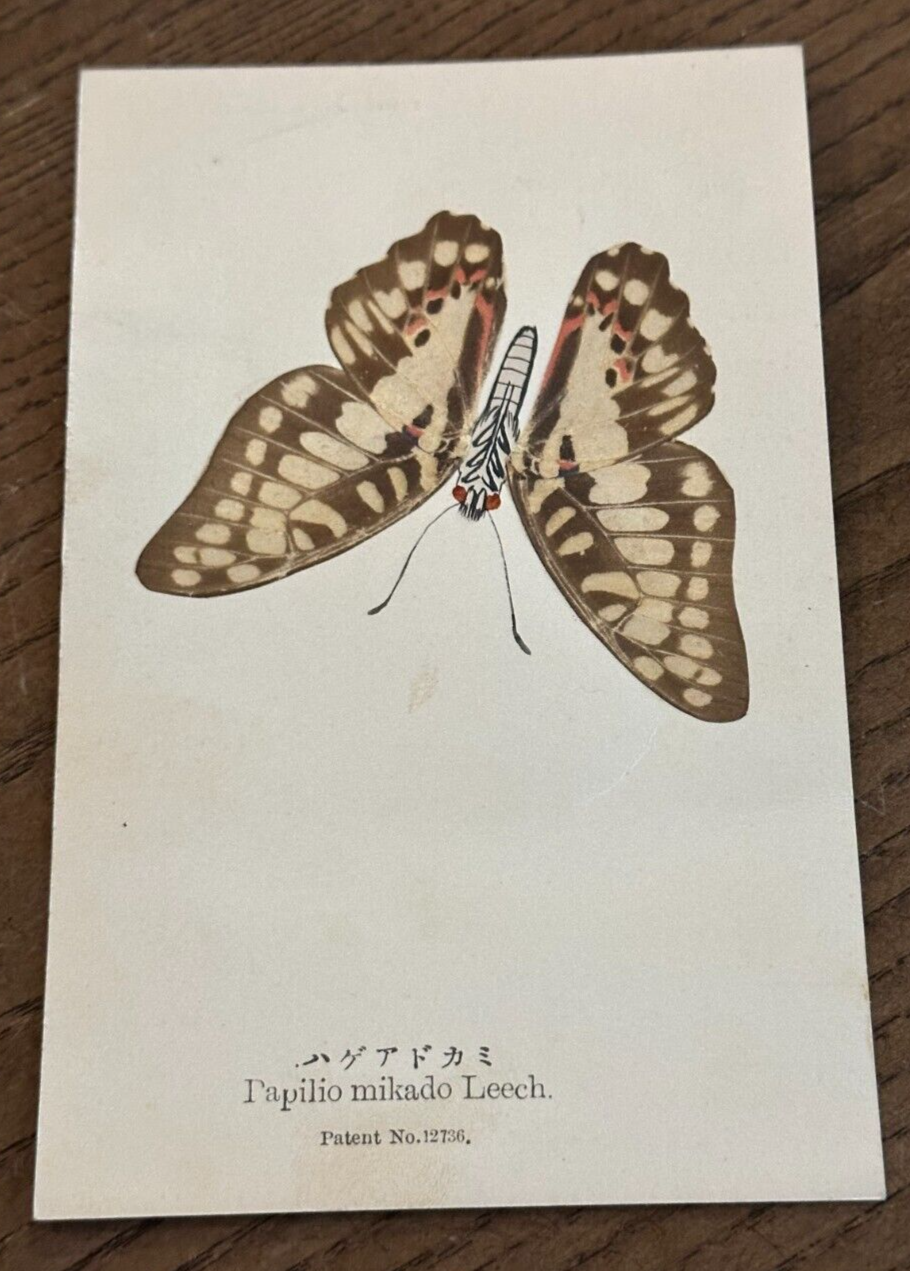 ミカドアゲハ
Papilio mikado Leech.
Patent No.12736.